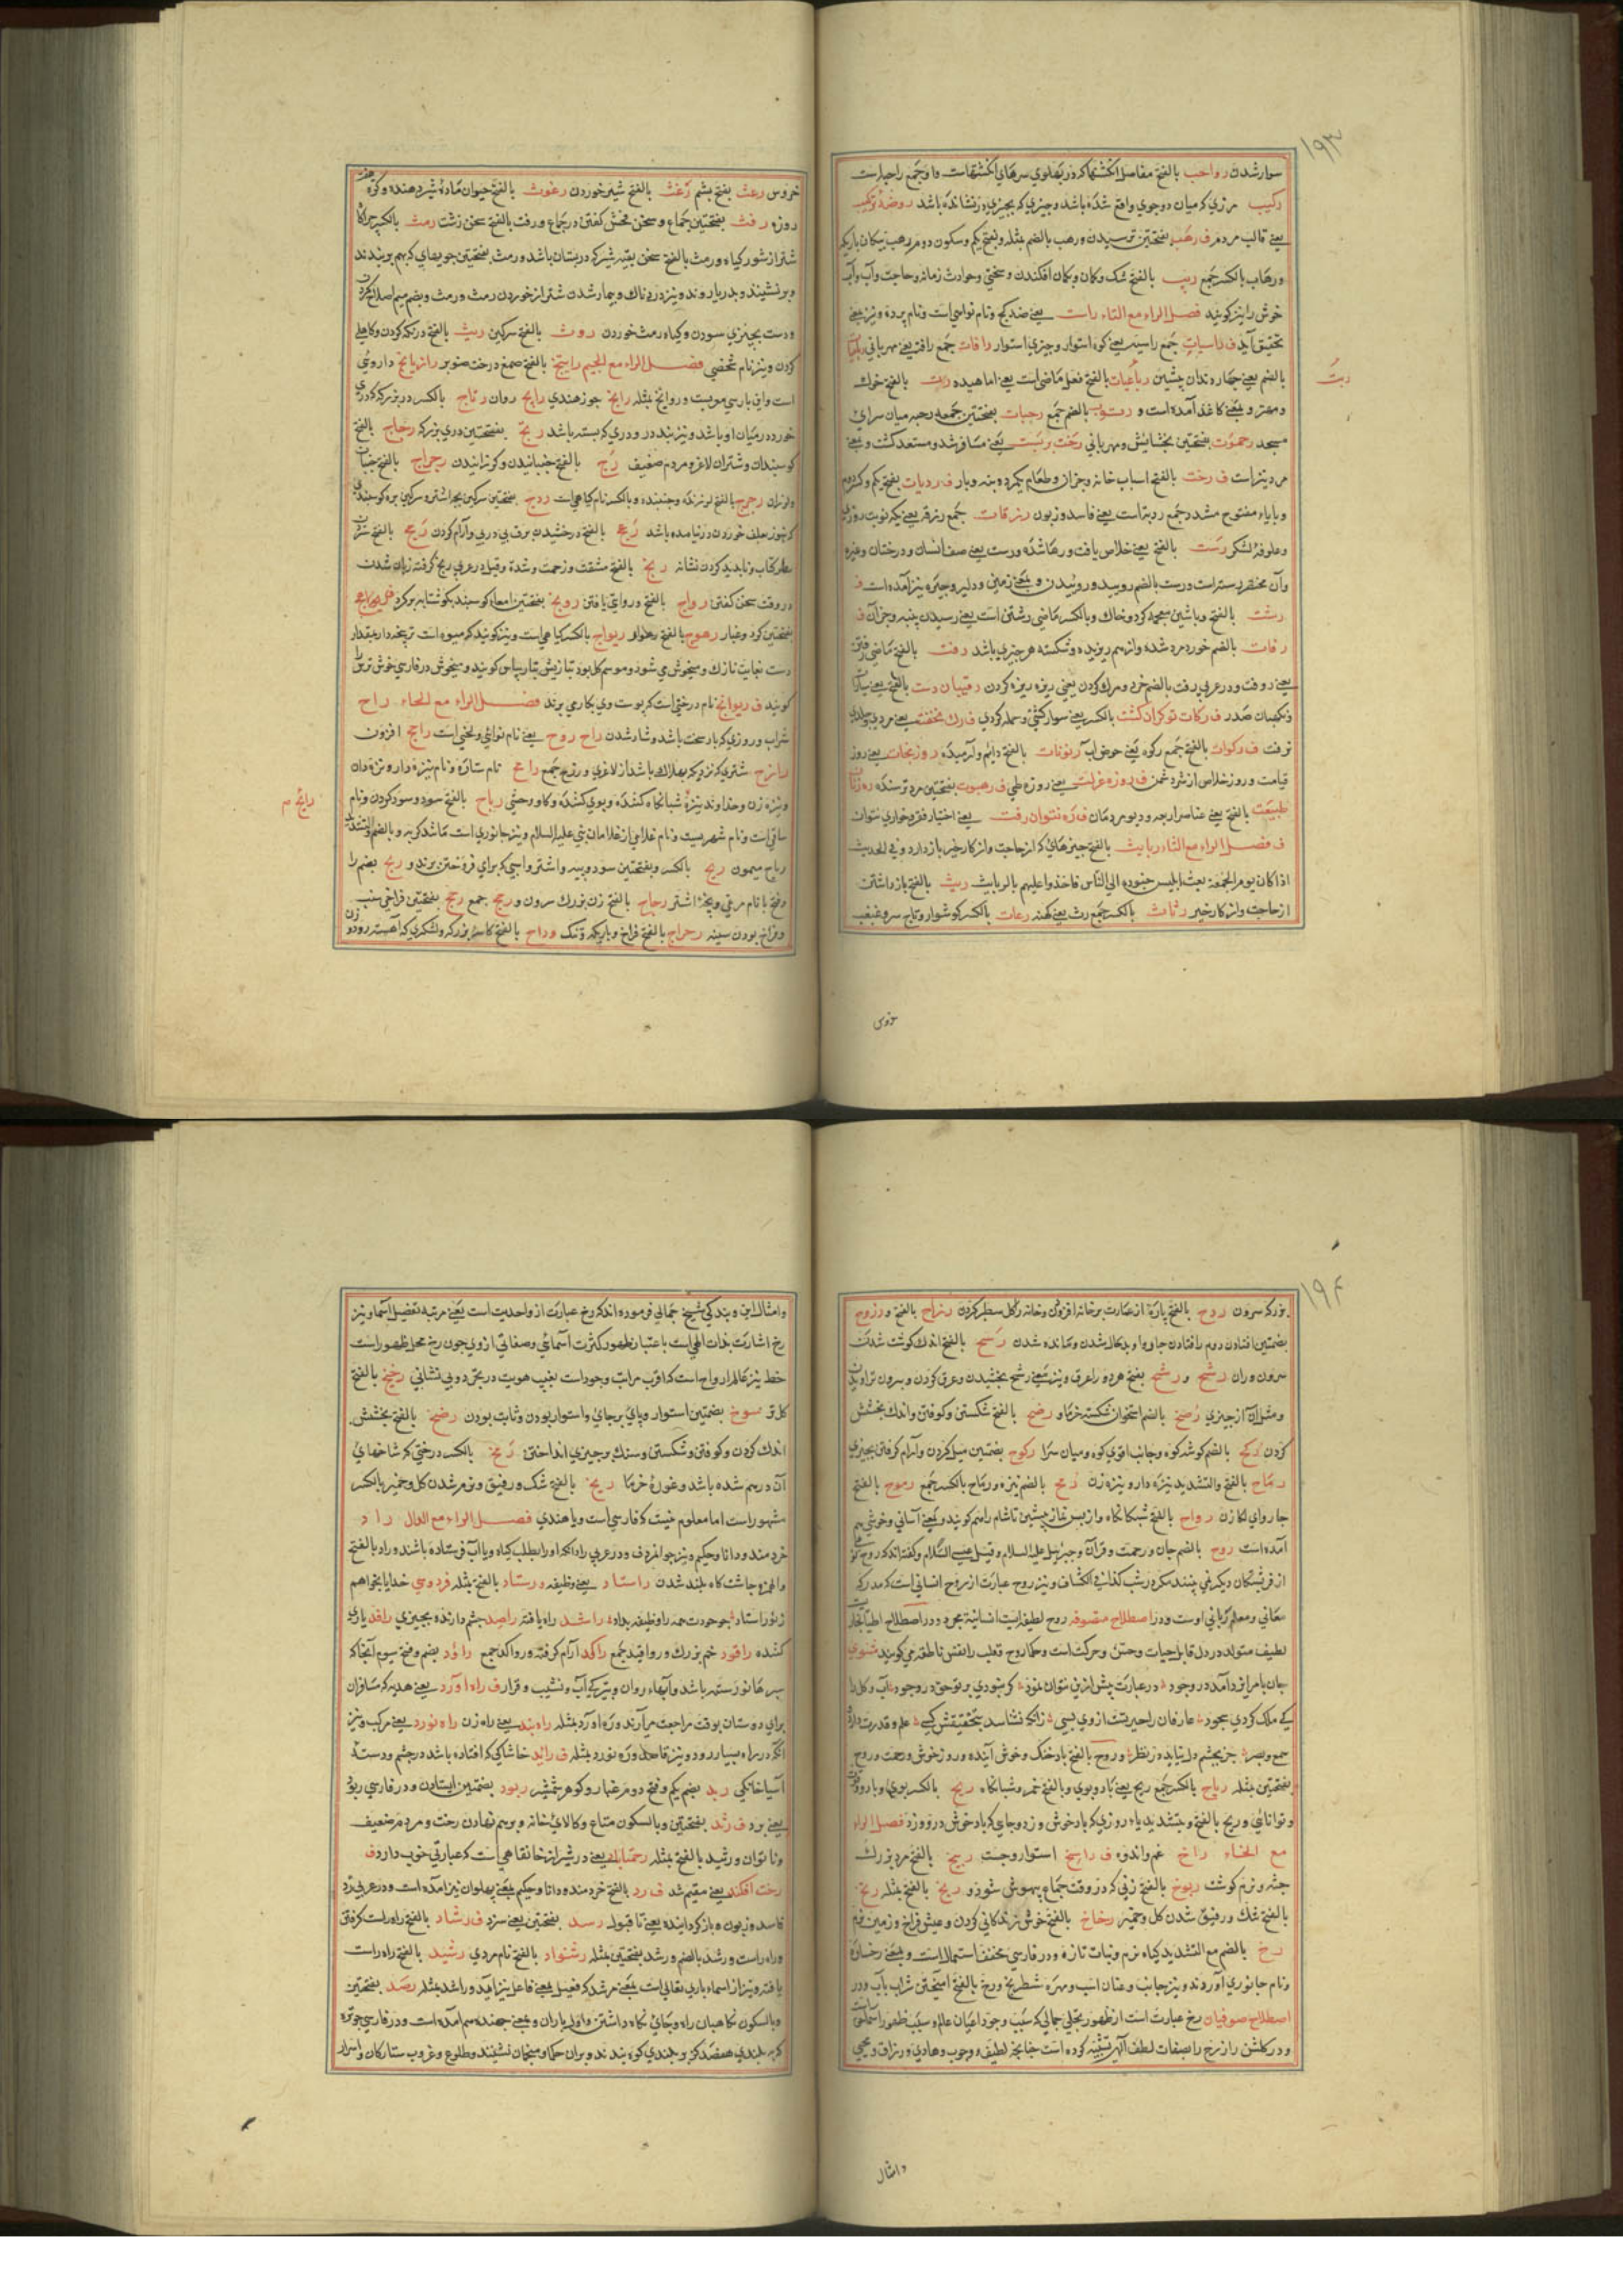 ۱۹۳
سوار شدن رواجب بالفتح مفاصل انگشتها که در پهلوی سرهای انگشتهاست واو جمع راجبه است
رکیب مرزی که میان دو جوی واقع شده باشد و چیزی که بچیزی در نشانده باشد
یعنی قالب مردم ف رهب بفتحتین ترسیدن و رهب بالضم مثله و بفتح یکم و سکون دوم رهب پیکان باریک
ورهاب بالکسر جمع ریب بالفتح شک و گمان و بگمان افکندن و سختی و حوادث زمانه و حاجت
خوش را نیز گویند فصل الراء مع التاء راست یعنی ضد کج و نام نوایی است و نام پرده و نیز یعنی
تحقیق آید ف راسیات جمع راسیه یعنی کوه استوار و چیزی استوار رافات جمع رافت یعنی مهربانی
بالضم یعنی چهار دندان پیشین رباعیات بالفتح فعل ماضی است یعنی اما هیده ربت بالفتح خوک
رت
و مهتر و بمعنی کاغذ آمده است و رتوت بالضم جمع رحبات بفتحتین جمع رحبه میان سرای
مسجد رحموت بفتحتین بخشایش و مهربانی رخت بربست یعنی مسافر شد و مستعد گشت و یعنی
مرد نیز است ف رخت بالفتح اسباب خانه و جز آن و طعام یکمرده و بنه و بار ف ردیات بفتح یکم و کسر دوم
و با یاء مفتوح مشدد جمع ردیه است یعنی فاسد و زبون رزقات جمع رزقه یعنی یکنوبت روزی
و علوفه لشکر رست بالفتح یعنی خلاص یافت و رها شده و رست یعنی صف انسان و درختان و غیره
وآن مختصر رسته است و رست بالضم روید و روئیدن و بمعنی زمین و دلیر و چیره نیز آمده است ف
رشت بالفتح و باشین معجمه گرد و خاک و بالکسر ماضی رشتن است یعنی رسیدن پنبه و جز آن ف
رفات بالضم خورد مرد شده و از هم ریزیده و شکسته هر چیزی باشد رفت بالفتح ماضی رفتن
یعنی روفت و در عربی رفت بالضم خرد و مرد کردن یعنی ریزه ریزه کردن رقیبان دست بالفتح
و نگهبان صدر ف رکات توکرانگشت بالکسر یعنی سوار گشتی و حمله کردی ف رک مخففت یعنی مردی
ترفت ف رکوات بالفتح جمع رکوه یعنی حوض آب رنونات بالفتح دایم و آرمیده روز نجات یعنی روز
قیامت و روز خلاص از شر دشمن ف روزه غزلت یعنی روزه طی ف رهبوت بفتحتین مرد ترسنده
طبیعت بالفتح یعنی عناصر اربعه و دیو مردمان ف ره نتوان رفت یعنی اختیار فقر و خواری نتوان
ف فصل الراء مع الثاء ربایث بالفتح چیزهائی که از حاجت و از کار خیر باز دارد و فی الحدیث
اذا کان یوم الجمعة بعث ابلیس جنوده الی الناس فاخذوا علیهم بالربایث ربث بالفتح باز داشتن
از حاجت و از کار خیر رثاث بالکسر جمع رث یعنی کهنه رعاث بالکسر گوشوار و تاج سر و غبغب
خروس
خروس رعث بفتح پشم رغث بالفتح شیر خوردن رغوث بالفتح حیوان ماده شیر دهنده
روزه رفث بفتحتین جماع و سخن فحش گفتن در جماع و رفت بالفتح سخن زشت رمث بالکسر چراگاه
شتر از شور گیاه و رمث بالفتح سخن بقیه شیر که در پستان باشد و رمث بفتحتین چوبهای که بهم بر بندند
و بر نشینند و بدریا روند و نیز دردناک و بیمار شدن شتر از خوردن رمث و رمث و بضم میم اصلاح کردن
و دست بچیزی سودن و گیاه رمث خوردن روث بالفتح سرگین ریث بالفتح درنگ کردن و کاهلی
کردن و نیز نام شخصی فصل الراء مع الجیم راتینج بالفتح صمغ درخت صنوبر رازیانج داروئی
است واین پارسی معربست و روانج مثله رانج جوز هندی رایج روان رتاج بالکسر در بزرگ که دری
خورد در میان او باشد و نیز بند در و دری که بسته باشد رتج بفتحتین دری بزرگ رجاج بالفتح
گوسبندان و شتران لاغر و مردم ضعیف رج بالفتح جنبانیدن رجراج بالفتح
و لرزان رجرج بالفتح لرزنده و جنبنده و بالکسر نام گیاهی است ردج بفتحتین سرگین بچه اشتر و سرگین بره گوسفند
که هنوز بعلف خوردن در نیامده باشد رعج بالفتح درخشیدن برق پی در پی و آرام کردن
سطر کتاب و ناپدید کردن نشانه رنج بالفتح مشقت و زحمت و شده و قیل در عربی رنج گرفته زبان شدن
در وقت سخن گفتن رواج بالفتح در روایی یافتن رودج بفتحتین امعای گوسبند
بفتحتین گرد و غبار رهوج بالفتح رهوار ریواج بالکسر گیاهی است و نیز گویند که میوه است
دست نهایت نازک و میخوش می شود و موسم گل بود تبازیش ریباس گویند و میخوش در فارسی خوش ترین
گویند ف ریوانج نام درختی است که پوست وی بکار می برند فصل الراء مع الحاء راح
شراب و روزی که باد سخت باشد و شاد شدن راح روح یعنی نام نوائی و لحنی است راجح افزون
رازح شتری که نزدیک بهلاک باشد از لاغری و رزح جمع رامح نام ستاره و نام نیزه دار و نیزه دان
و نیزه زن و خداوند نیزه شبانگاه کننده و بوی کننده و گاو وحشی رباح بالفتح سود و سود کردن و نام
رایح م
ساقی است و نام شهریست و نام غلامی از غلامان نبی علیه السلام و نیز جانوری است مانند گربه و بالضم والتشدید
رباح میمون ربح بالکسر و بفتحتین سود و پیه و اشتر و اسپی که برای فروختن برند و ربح بضم را
وفتح با نام مرغی و بچه اشتر رجاح بالفتح زن بزرگ سرون و رجح جمع رحح بفتحتین فراخی سنب
و فراخ بودن سینه رحراح بالفتح فراخ رداح بالفتح کاسه بزرگ و لشکری که آهسته رود و زن
۱۹۴
بزرگ سرون ردح بالفتح پاره از عمارت بر خانه افزودن و خانه را گل سطبر کردن رزاح بالفتح و رزوح
بضمتین افتادن دوم را فتادن چاروا و بدحال شدن و مانده شدن رسح بالفتح اندک گوشت شدن
سرون و ران رشح و رشح بفتح هر دو را عرق و نیز بمعنی رشح بخشیدن و عرق کردن و بیرون تراویدن
و مثل آن از چیزی رضح بالضم استخوان شکسته خرما و رضح بالفتح شکستن و کوفتن و اندک بخشش
کردن رکح بالضم گوشه کوه و جانب اقوی کوه و میان سرا رکوح بضمتین میل کردن و آرام گرفتن بچیزی
رماح بالفتح والتشدید نیزه دار و نیزه زن رمح بالضم نیزه و رماح بالکسر جمع رموح بالفتح
چاروای لگد زن رواح بالفتح شبانگاه و از پس نماز پیشین تا شام را هم گویند و بمعنی آسانی و خوشی هم
آمده است روح بالضم جان و رحمت و قرآن و جبرئیل علیه السلام و قیل عیسی السلام و گفته اند که روح
از فرشتگان دیگر نمی بینند مگر در شب کذا فی الکشاف و نیز روح عبارت از روح انسانی است که مدرک
معانی و معلم ربانی اوست و در اصطلاح متصوفه روح لطیفه ایست انسانیه مجرد و در اصطلاح اطبا بخار
لطیف متولد در دل قابل حیات و حس و حرکت است و حکما روح و قلب را نفس ناطقه می گویند مثنوی
جان بامر ایزد آمد در وجود در عبارت پیش ازین نتوان نمود گر نبودی پرتو حق در وجود آب و گل را
کی ملک کردی سجود عارفان را حیرتست از وی بسی زانکه نشناسد بتحقیقش کسی علم و قدرت دارد
سمع و بصر جز بچشم دل نیاید در نظر و روح بالفتح باد خنک و خوش آینده و روز خوش و رحمت و روح
بفتحتین مثله ریاح بالکسر جمع ریح یعنی باد و بوی و بالفتح خمر و شبانگاه ریح بالکسر بوی و باد و دولت
و توانائی و ریح بالفتح و بتشدید یاء روزی که باد خوش وزد و جای که باد خوش درو وزد فصل الراء
مع الخاء راخ غم و اندوه ف راسخ استوار و چست ربیخ بالفتح مرد بزرگ
جثه و نرم گوشت ربوخ بالفتح زنی که در وقت جماع بیهوش شود و ربخ بالفتح مثله رتخ
بالفتح تنک و رقیق شدن گل و خمیر رخاخ بالفتح خوش زندگانی کردن و عیش فراخ و زمین نرم
رخ بالضم مع التشدید گیاه نرم و نبات تازه و در فارسی مخفف استعمال است و بمعنی رخساره
و نام جانوری آورند و نیز جانب و عنان اسب و مهره شطرنج و رخ بالفتح آمیختن شراب بآب و در
اصطلاح صوفیان رخ عبارت است از ظهور تجلی جمالی که سبب وجود اعیان عالم و سبب ظهور اسمائی است
و در گلشن راز رخ را بصفات لطف الهی تشبیه کرده است چنانچه لطیف و وجوب و هادی و رزاق و محیی
وامثال
وامثال این و بندگی شیخ جمالی فرموده اند که رخ عبارت از واحدیت است یعنی مرتبه تفصیل اسما و نیز
رخ اشارت بذات الهی است باعتبار ظهور کثرت اسمائی و صفاتی از وی چون رخ محل ظهور است
خط نیز عالم ارواح است که اقرب مراتب وجود است بغیب هویت در تجرد و بی نشانی رخیخ بالفتح
گل تر رسوخ بضمتین استوار و پای برجای و استوار بودن و ثابت بودن رضخ بالفتح بخشش
اندک کردن و کوفتن و شکستن و سنگ بر چیزی انداختن رمخ بالکسر درختی که شاخهای
آن درهم شده باشد و غوره خرما ریخ بالفتح تنک و رقیق و نرم شدن گل و خمیر بالکسر
مشهور است اما معلوم نیست که فارسی است و یا هندی فصل الراء مع الدال راد
خردمند و دانا و حکیم و نیز جوانمرد ف و در عربی راد آنکه او را بطلب گیاه و یا آب فرستاده باشند و راد بالفتح
والهمزه چاشتگاه بلند شدن راستاد یعنی وظیفه و رستاد بالفتح مثله فردوسی خدایا بخواهم
ز تو راستاد چو خودت همه را وظیفه بداد راشد راه یافته راصد چشم دارنده بچیزی رافد یاری
کننده راقود خم بزرگ و رواقید جمع راکد آرام گرفته و رواکد جمع راود بضم و فتح سیوم آنجا که
سبزها نو رسته باشد و آبهاء روان و نیز یکی آب و نشیب و فراز ف راه آورد یعنی هدیه که مسافران
برای دوستان بوقت مراجعت می آرند و ره آورد مثله راه بند یعنی راه زن راه نورد یعنی مرکب و نیز
آنکه در راه بسیار رود و نیز قاصد و ره نورد مثله ف راید خاشاکی که افتاده باشد در چشم و دسته
آسیا خانگی ربد بضم یکم و فتح دوم غبار و گوهر شمشیر ربود بضمتین ایستادن و در فارسی ربود
یعنی برد ف رثد بفتحتین و بالسکون متاع و کالای خانه و بر هم نهادن رخت و مردم ضعیف
و ناتوان و رثید بالفتح مثله رحمتاباد یعنی در شیراز خانقاهی است که عبارتی خوب دارد ف
رخت افکند یعنی مقیم شد ف رد بالفتح خردمند و دانا و حکیم بمعنی پهلوان نیز آمده است و در عربی رد
فاسد و زبون و باز گردانیده یعنی نا قبول رسد بفتحتین یعنی سزد ف رشاد بالفتح راه راست گرفتن
و راه راست و رشد بالضم و رشد بفتحتین مثله رشنواد بالفتح نام مردی رشید بالفتح راه راست
یافته و نیز از اسماء باری تعالی است بمعنی مرشد که فعیل بمعنی فاعل نیز آمد و راشد مثله رصد بفتحتین
و بالسکون نگاهبان راه و بجائی نگاه داشتن و اول باران و بمعنی جهنده هم آمده است و در فارسی چوتره
که بلندی هفصد گز و بلندی کوه بندند و بران حکما و منجمان نشینند و طلوع و غروب ستارگان و اسرار